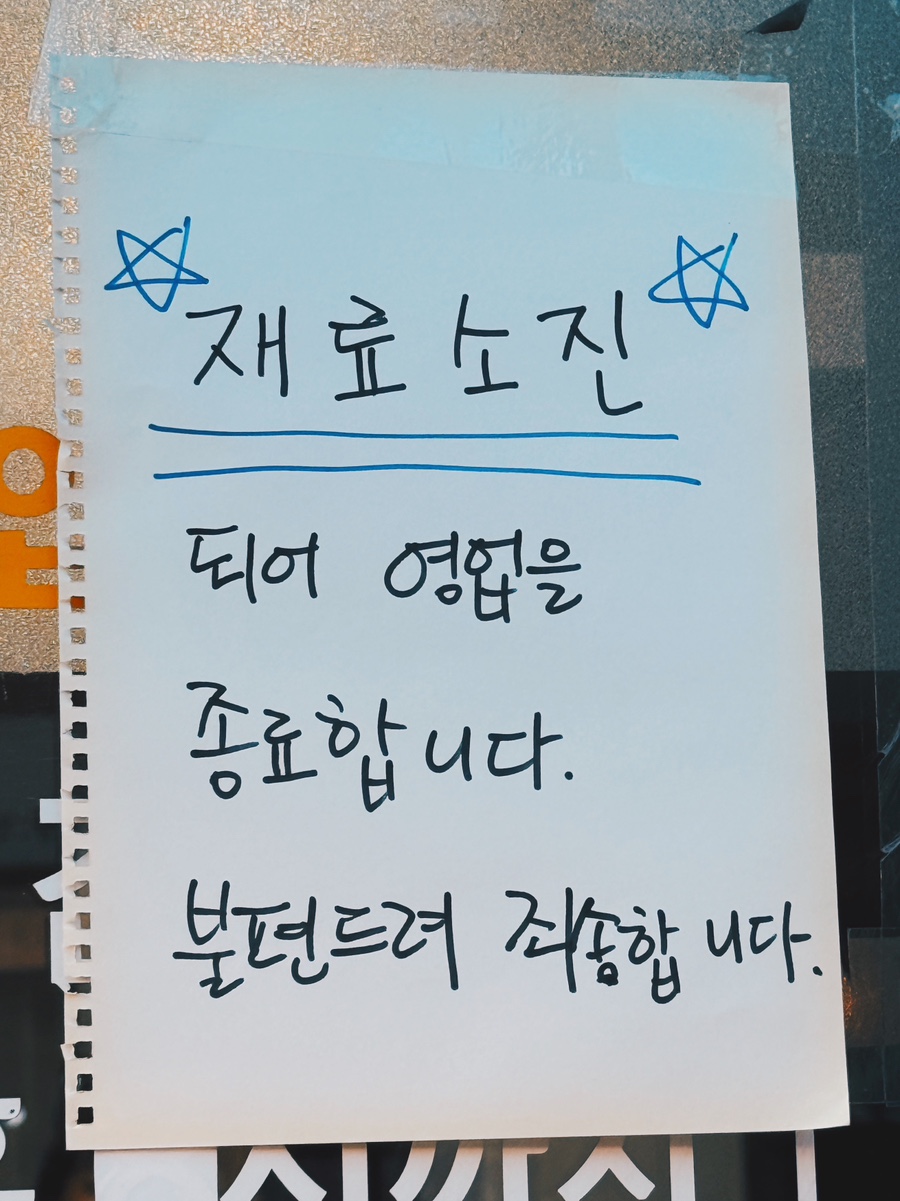 재료소진
되어 영업을
종료합니다.
불편드려 죄송합니다.